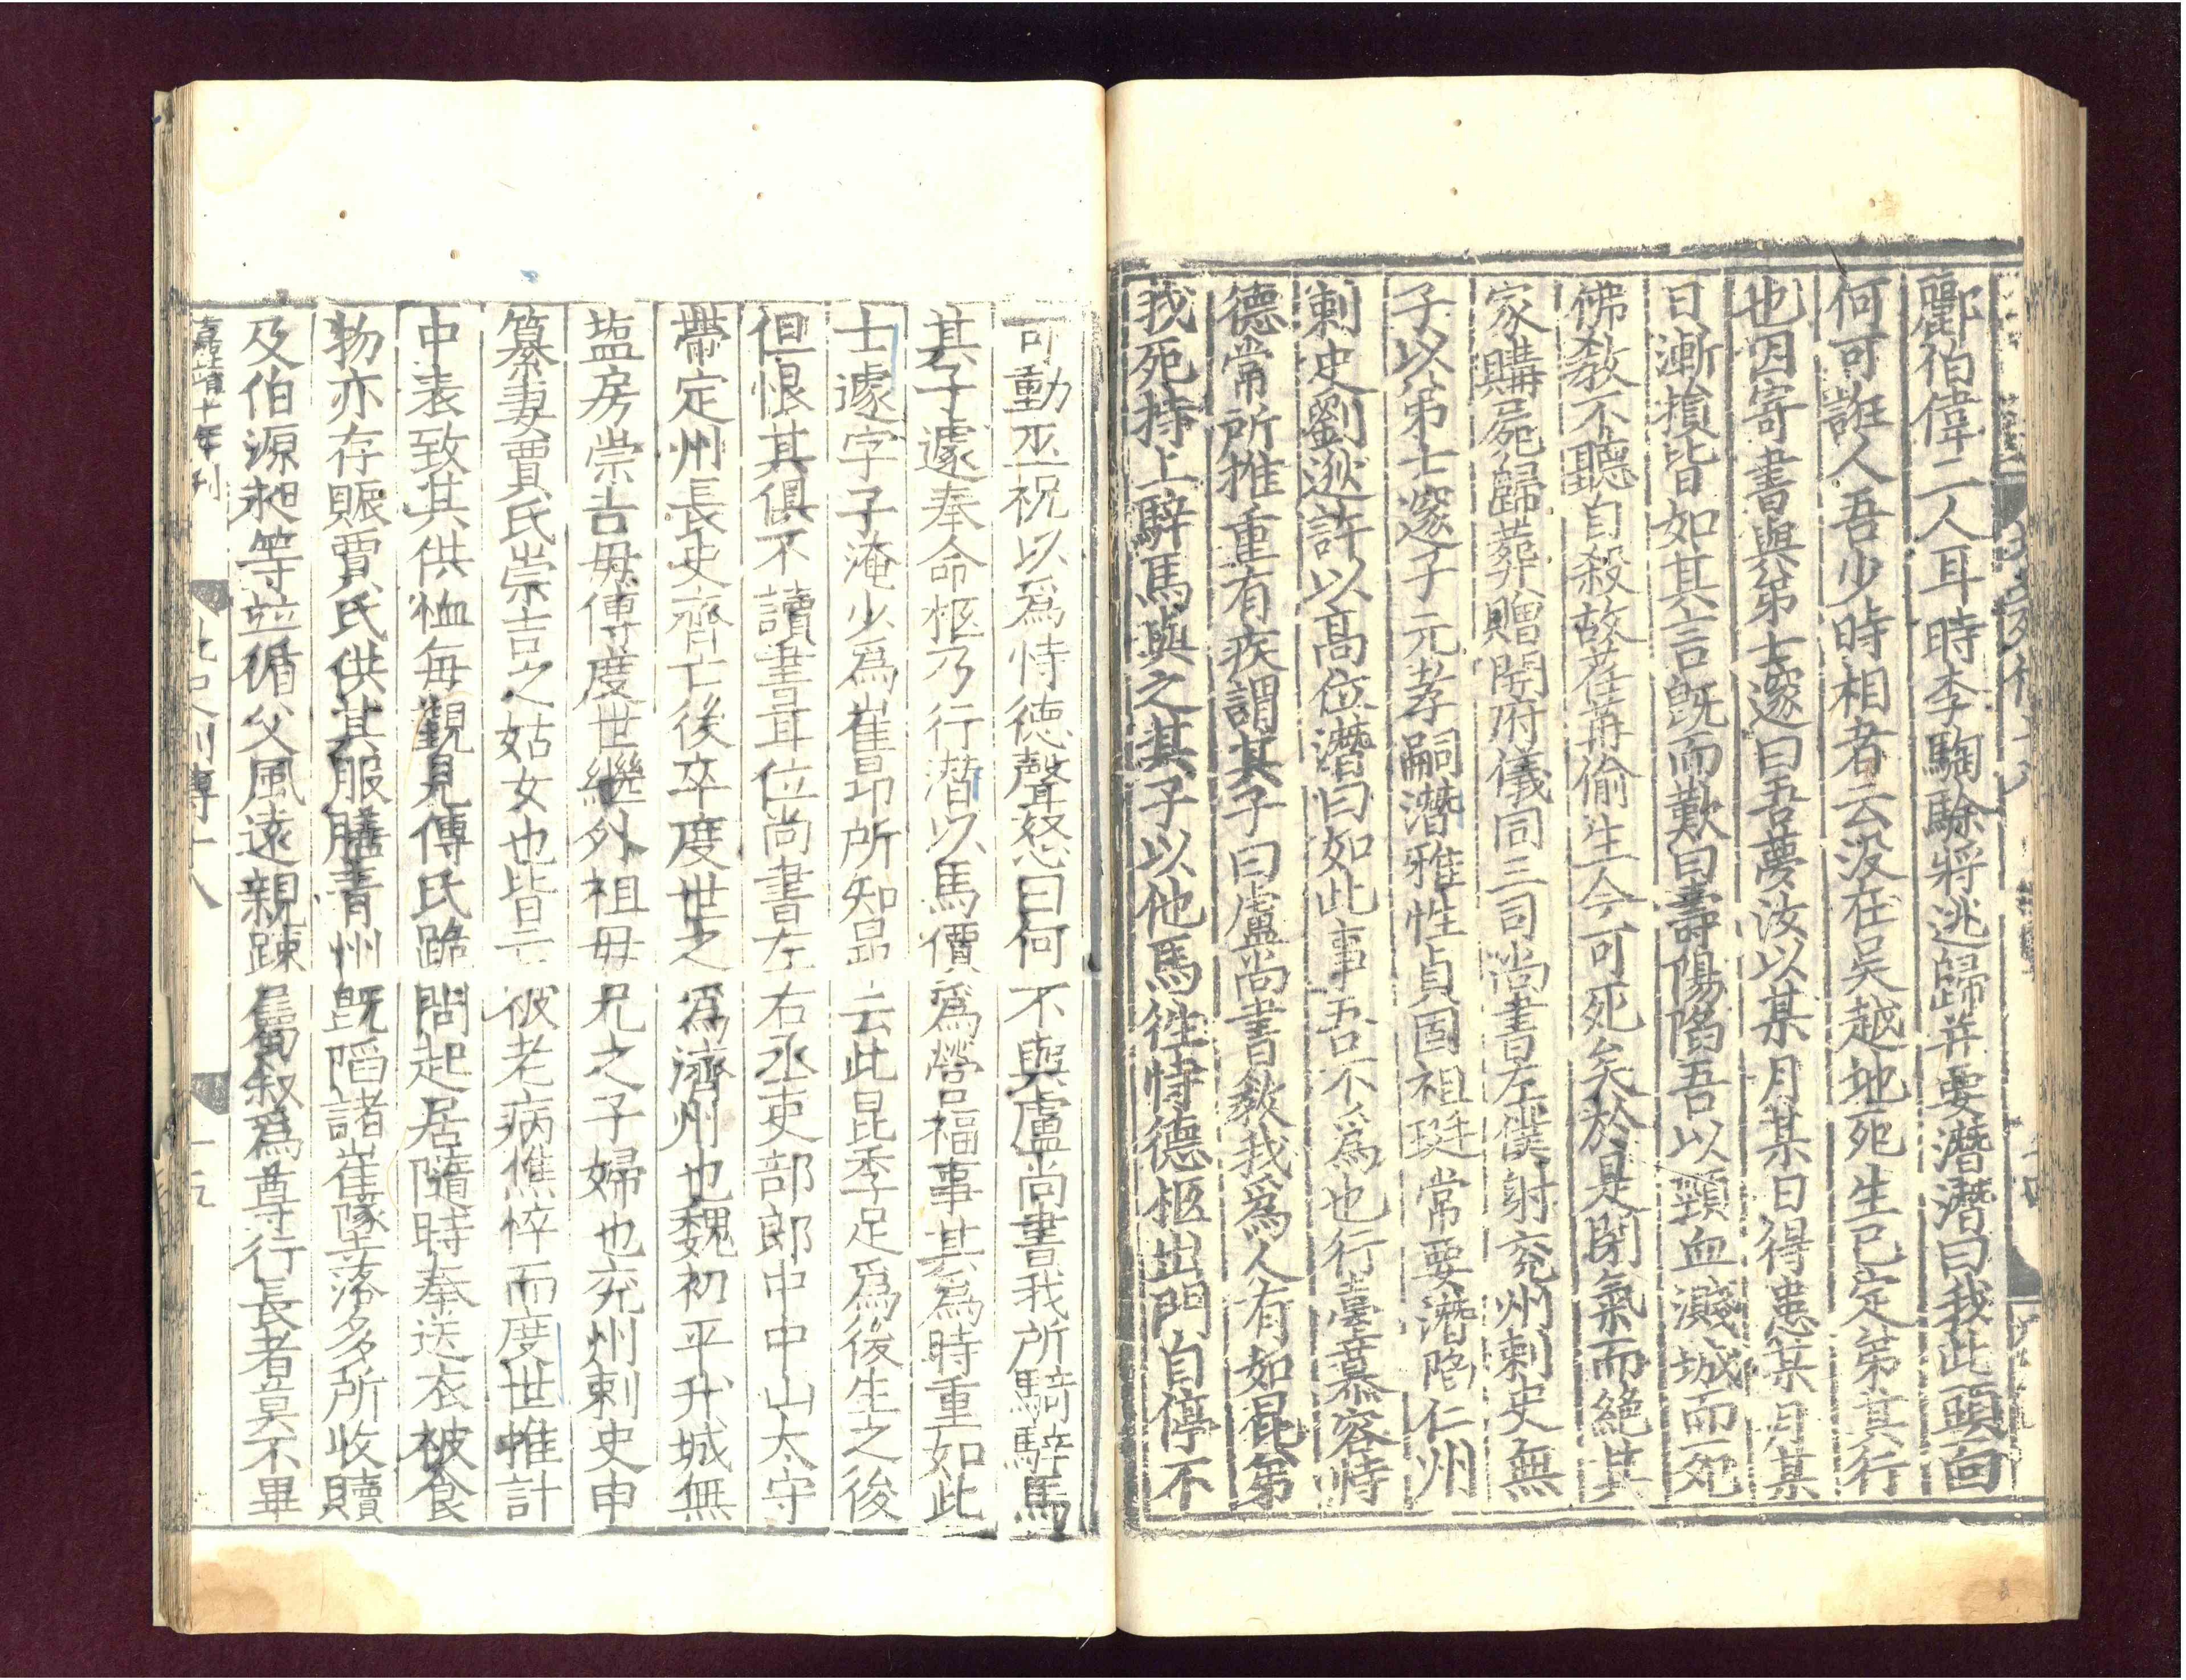 酈伯偉二人耳時李騊駼將逃歸并要潛潛曰我此頭面
何可誑人吾少時相者云没在吳越地死生已定第其行
也因寄書與弟士邃曰吾夢汝以某月某日得患某月某
日漸損皆如其言旣而歎曰壽陽陷吾以頸血濺城而死
佛教不聽自殺故荏苒偷生今可死矣於是閉氣而絕其
家購屍歸葬贈開府儀同三司尚書左僕射兖州刺史無
子以弟士邃子元孝嗣潛雅性貞固祖珽常要潛陷仁州
刺史劉逖許以高位潛曰如此事吾不爲也行臺慕容恃
德常所推重有疾謂其子曰盧尚書敎我爲人有如昆弟
我死持上騂馬與之其子以他馬往恃德柩出門自停不
可動巫祝以爲恃德聲怒曰何不與盧尚書我所騎騂馬
其子遽奉命柩乃行潛以馬價爲營福事其爲時重如此
士邃字子淹少爲崔昂所知昂云此昆季足爲後生之後
但恨其俱不讀書耳位尚書左右丞吏部郎中中山太守
帶定州長史齊亡後卒度世之爲濟州也魏初平升城無
塩房崇吉母傅度世繼外祖母兄之子婦也兖州刺史申
纂妻賈氏崇吉之姑女也皆亡破老病憔悴而度世推計
中表致其供恤每覲見傅氏跪問起居隨時奉送衣被食
物亦存賑賈氏供其服膳青州旣陷諸崔墜落多所收贖
及伯源昶等並循父風遠親踈屬叙爲尊行長者莫不畢
嘉靖十年刊
北史列傳十八
十五